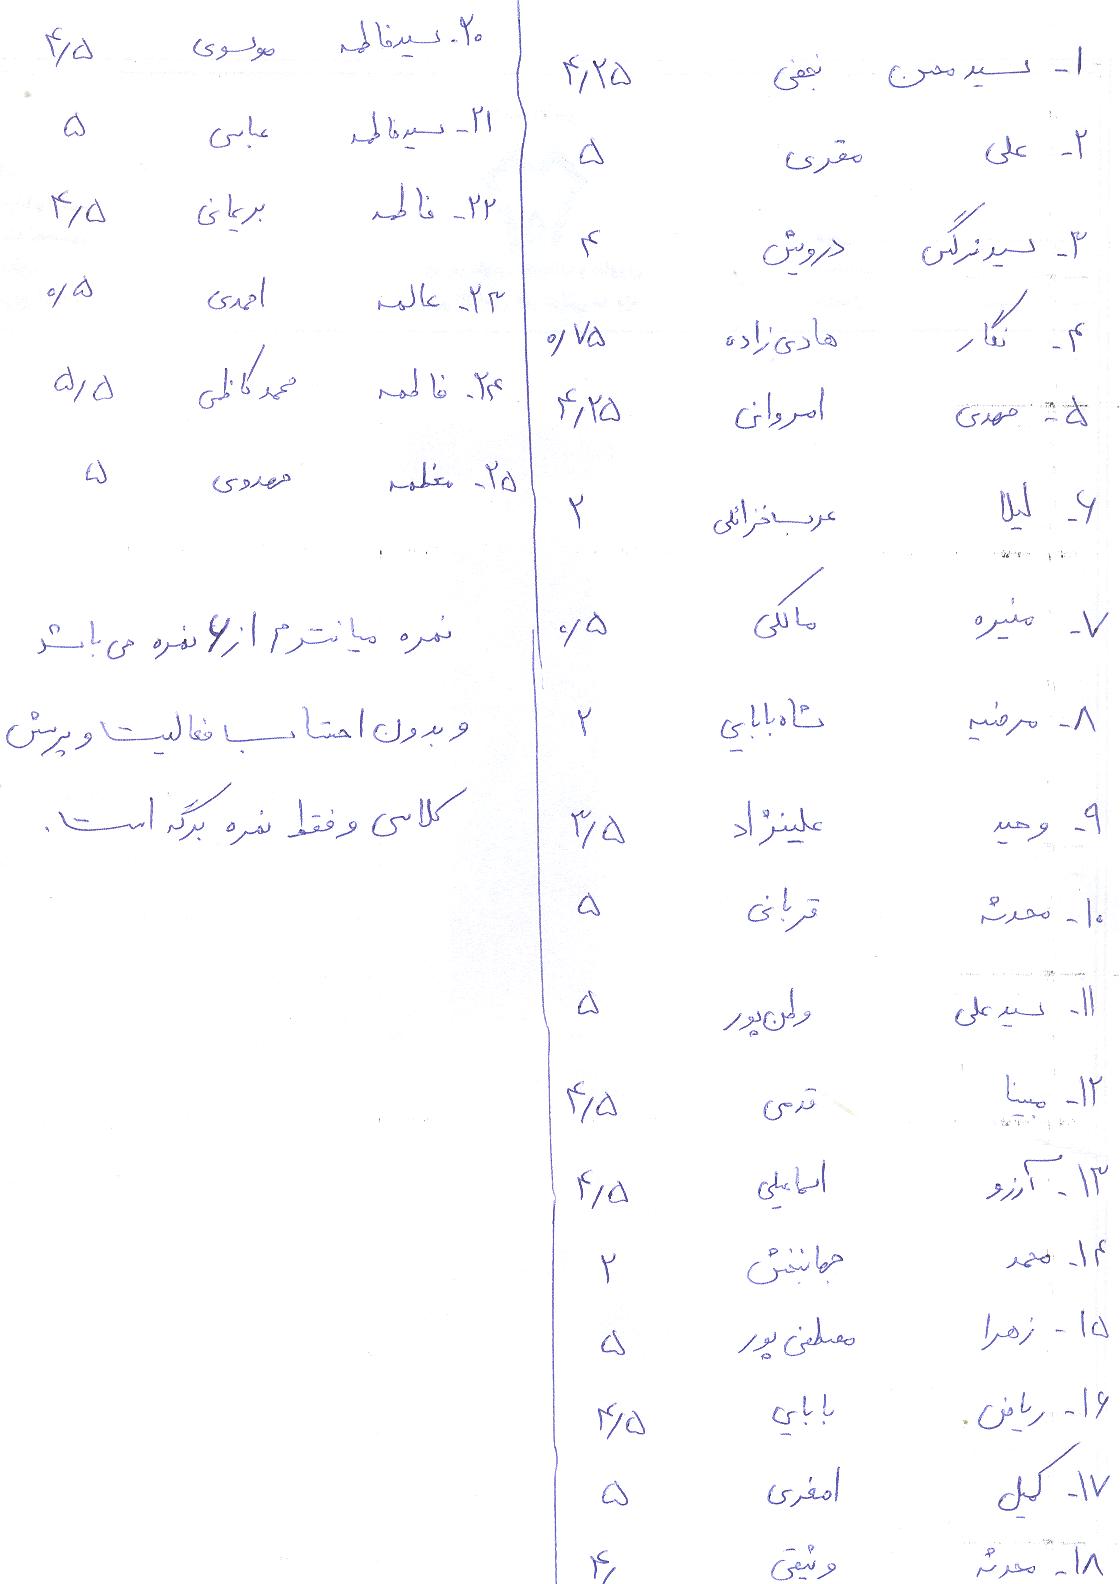 ۱- سیدمحسن نجفی ۴٫۲۵
۲- علی مقری ۵
۳- سیدنرگس درویش ۴
۴- نگار هادی‌زاده ۰٫۷۵
۵- مهدی امروانی ۴٫۲۵
۶- لیلا عرب‌خزائلی ۲
۷- منیره مالکی ۰٫۵
۸- مرضیه شاه‌بابایی ۲
۹- وحید علینژاد ۳٫۵
۱۰- محدثه قربانی ۵
۱۱- سیدعلی وطن‌پور ۵
۱۲- مبینا قدمی ۴٫۵
۱۳- آرزو اسماعیلی ۴٫۵
۱۴- محمد جهانبخش ۲
۱۵- زهرا مصطفی‌پور ۵
۱۶- ریاض بابایی ۴٫۵
۱۷- کمیل اصغری ۵
۱۸- محدثه وثیقی ۴٫
۲۰- سیدفاطمه موسوی ۴٫۵
۲۱- سیدفاطمه عباسی ۵
۲۲- فاطمه بریمانی ۴٫۵
۲۳- عالمه احمدی ۰٫۵
۲۴- فاطمه محمدکاظمی ۵٫۵
۲۵- معظمه مهدوی ۵
نمره میانترم از ۶ نمره می‌باشد
و بدون احتساب فعالیت و پرسش
کلاسی و فقط نمره برگه است.